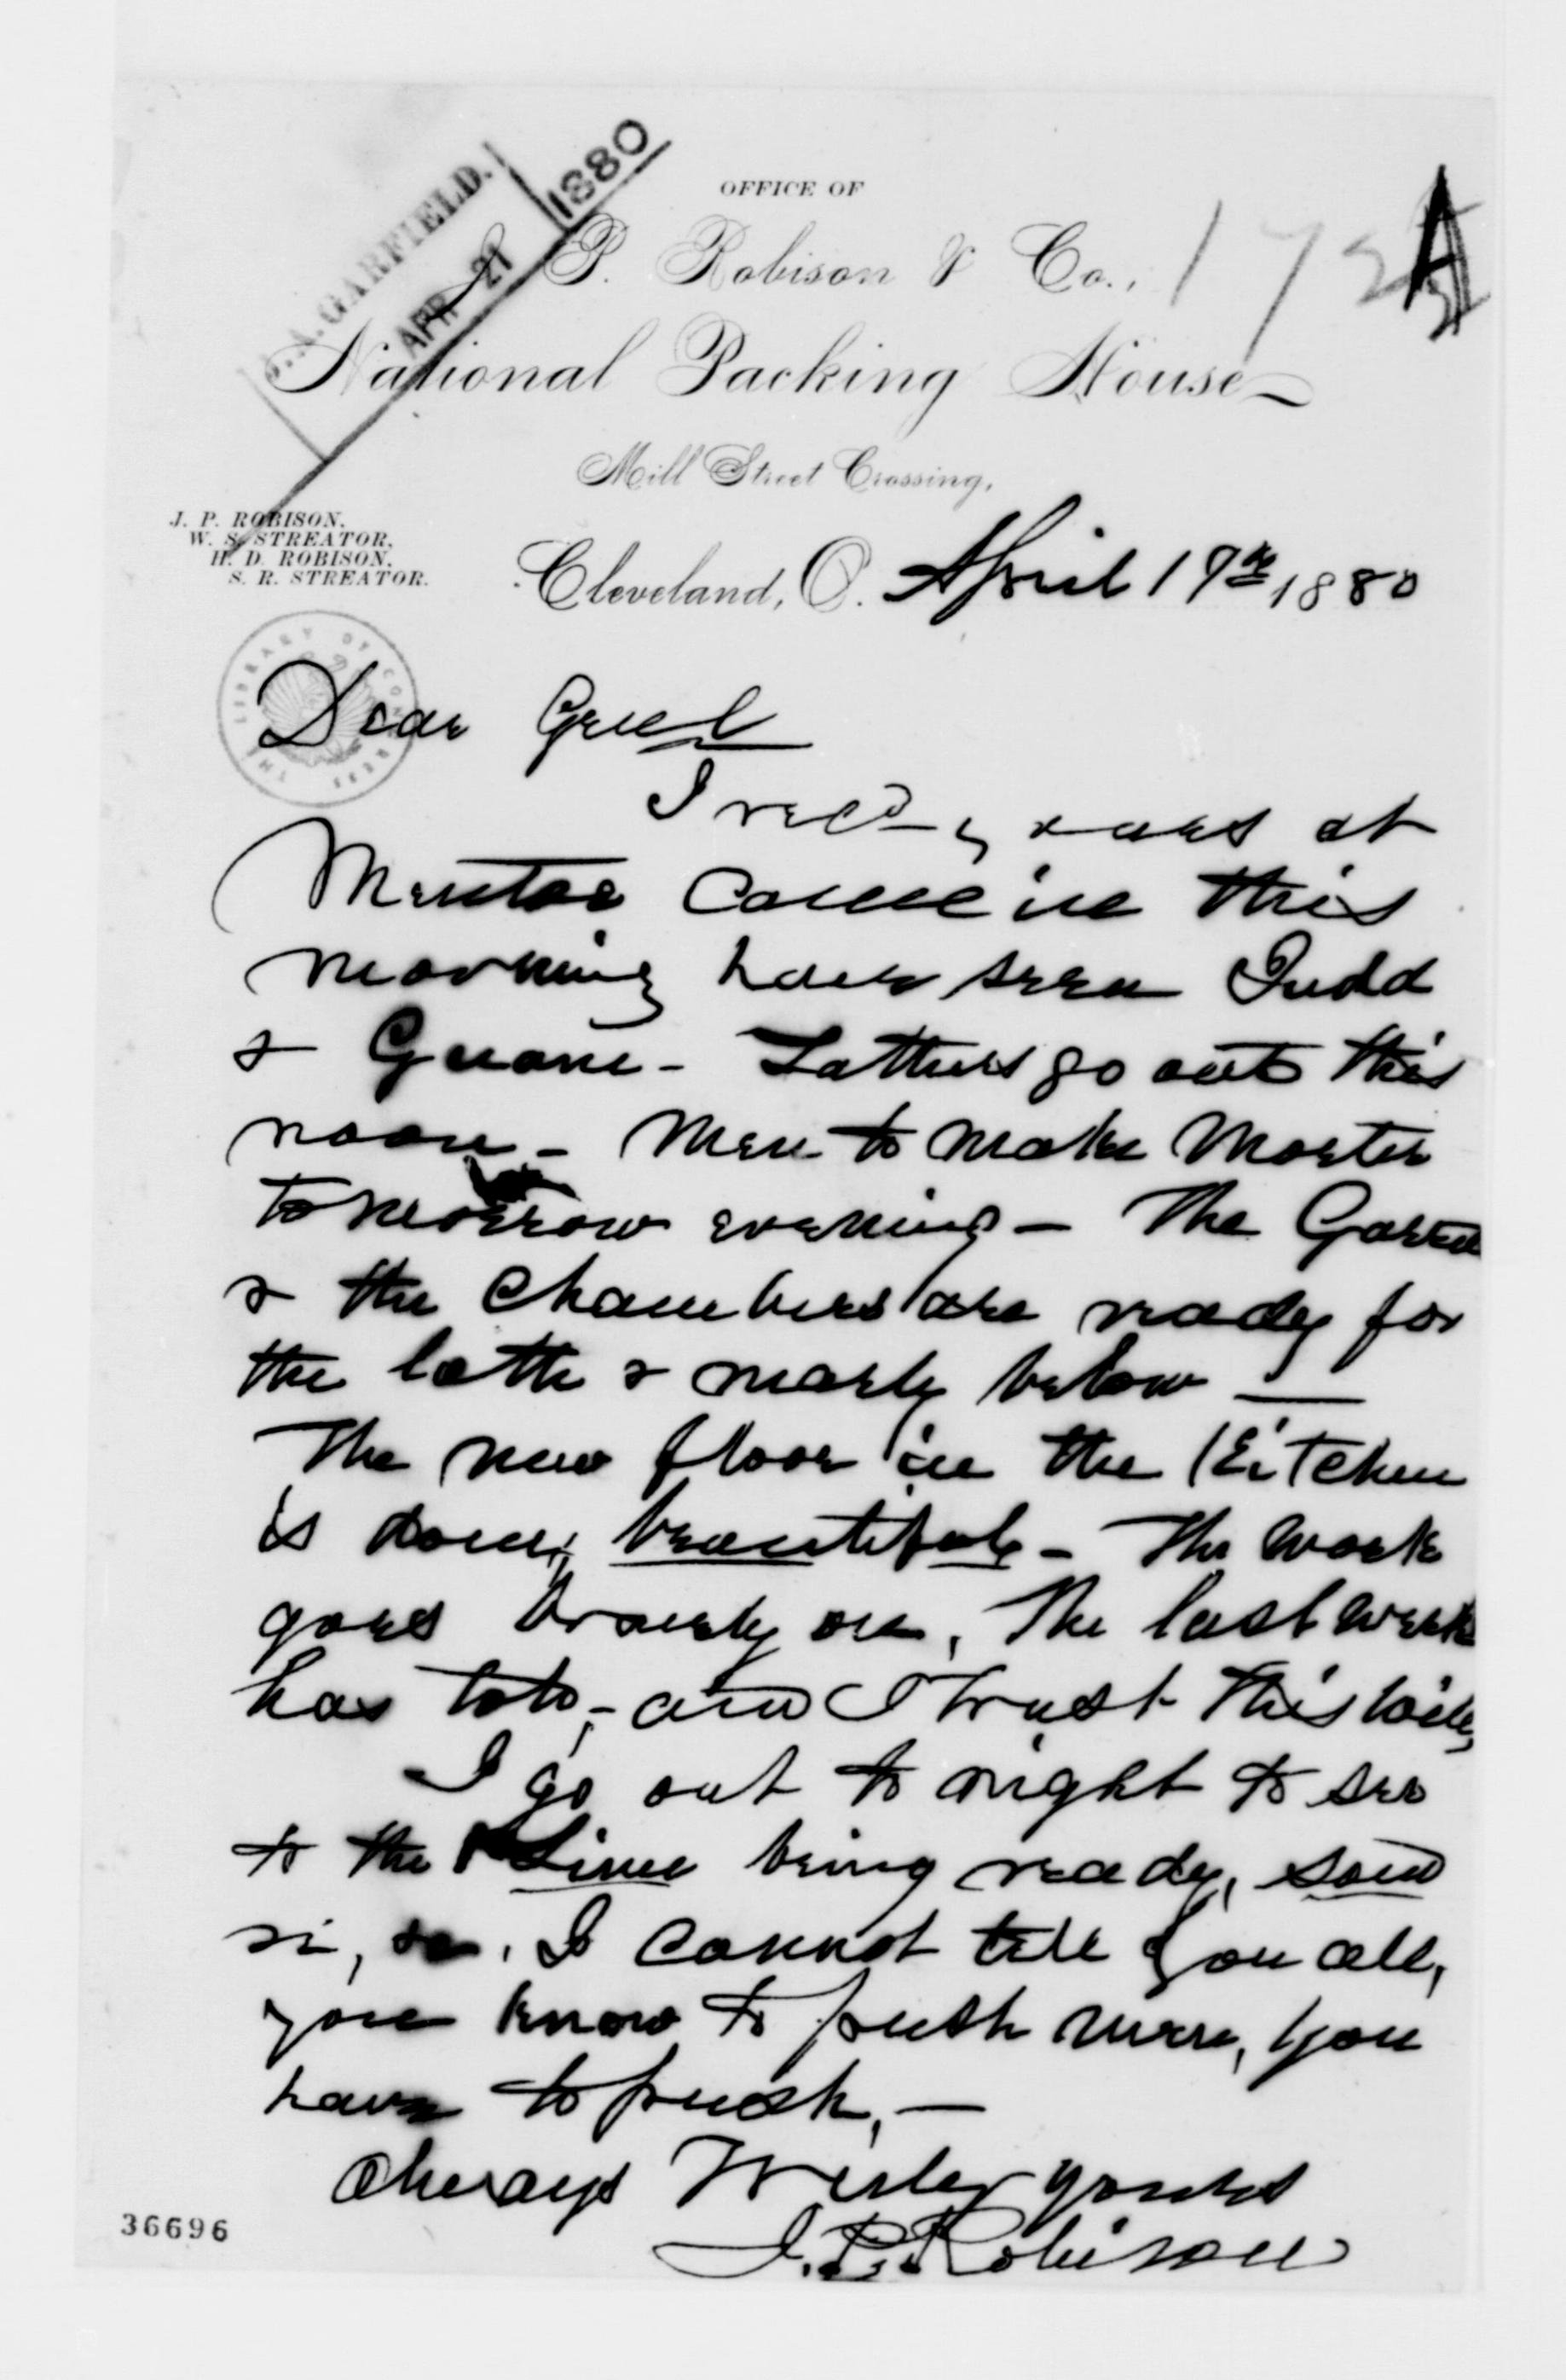 J. A. GARFIELD.
APR 21
1880
OFFICE OF
J. P. Robison & Co.,
172
National Packing House
Mill Street Crossing,
J. P. ROBISON,
W. S. STREATOR,
H. D. ROBISON,
S. R. STREATOR.
Cleveland, O. April 19th 1880
THE LIBRARY OF CONGRESS
Dear Genl
I recd yours at
Mentor Came in this
morning have seen Judd
& - Lathers go out this
noon - Men to make Morter
tomorrow evening - The Garret
& the Chambers are ready for
the lath & nearly below —
The new floor in the Kitchen
is down, beautiful - The work
goes bravely on, The last week
has told, - and I trust this will,
I go out to night to see
to the Lime being ready, sand
I cannot tell you all,
you know to push men, you
have to push, —
Always Truly yours
J. P. Robison
36696